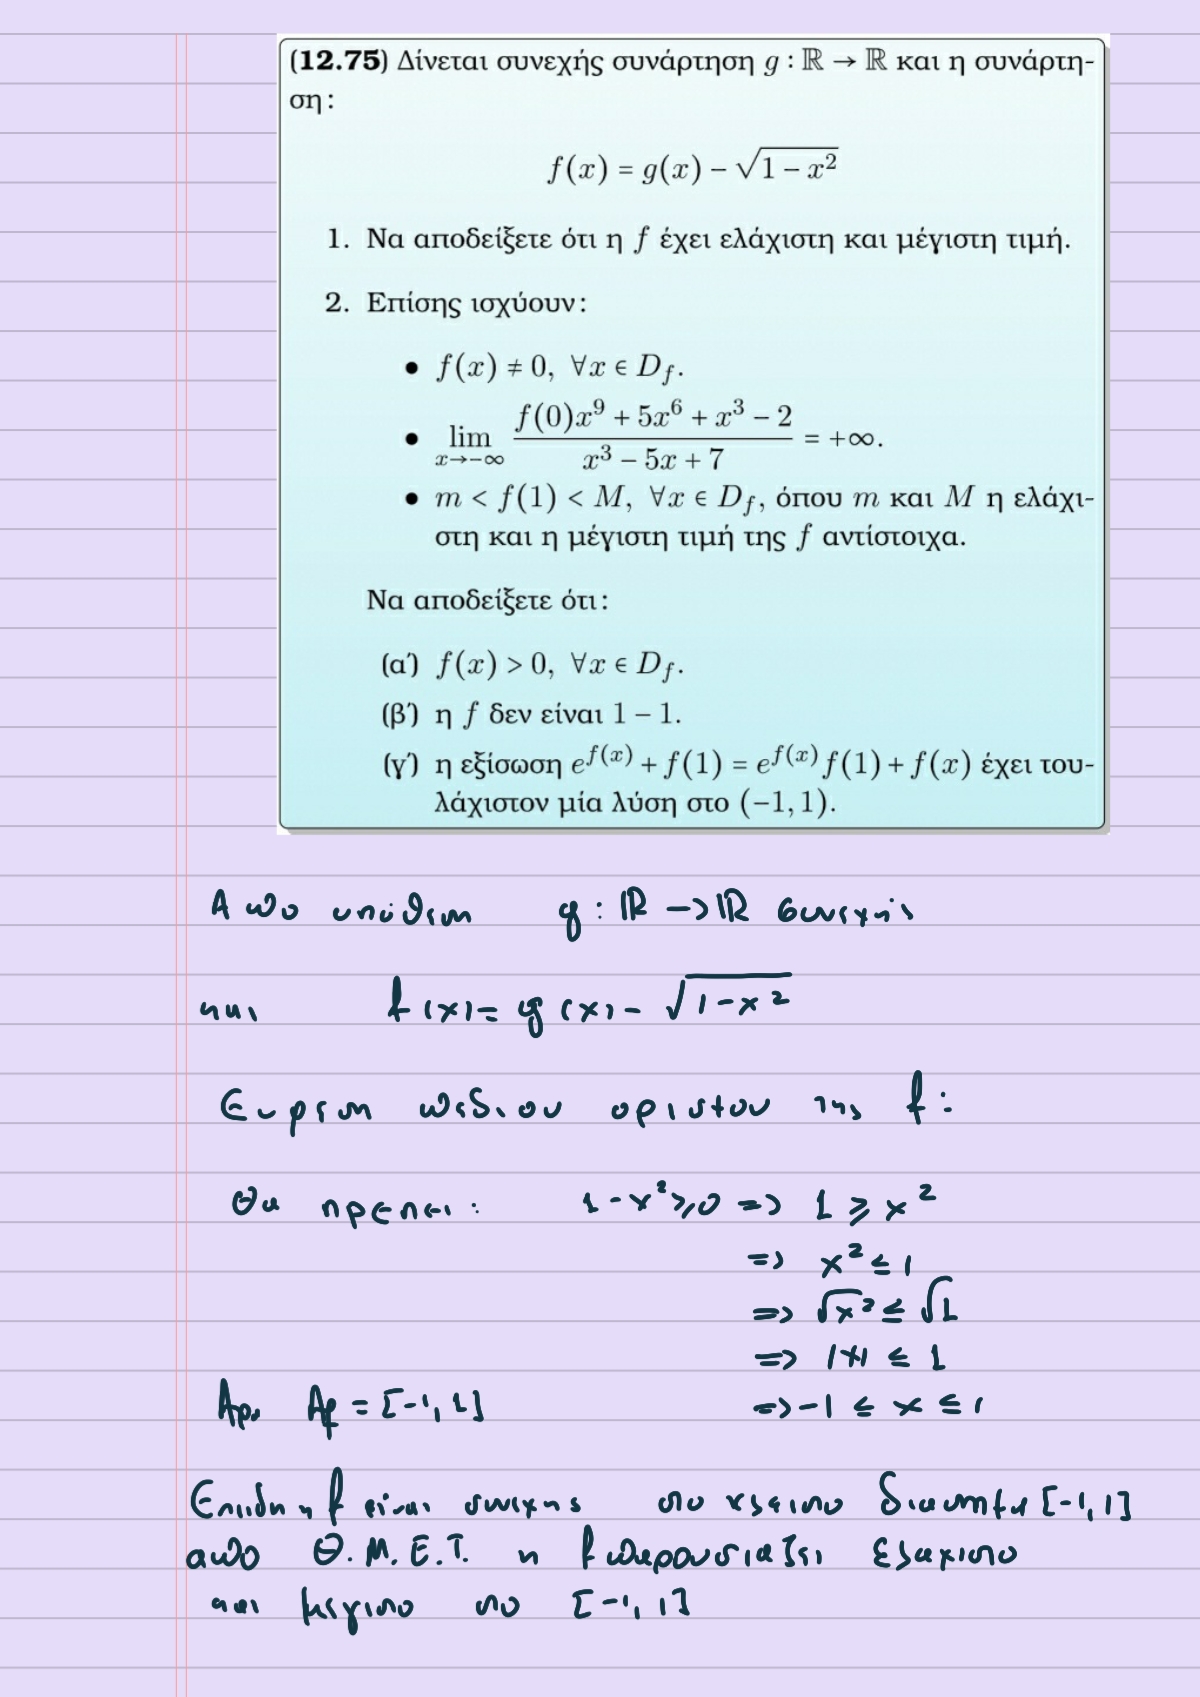 (12.75) Δίνεται συνεχής συνάρτηση g : ℝ → ℝ και η συνάρτη-
ση:
f(x) = g(x) − √(1 − x²)
1. Να αποδείξετε ότι η f έχει ελάχιστη και μέγιστη τιμή.
2. Επίσης ισχύουν:
• f(x) ≠ 0, ∀x ∈ D_f.
• lim_{x→−∞} (f(0)x⁹ + 5x⁶ + x³ − 2)/(x³ − 5x + 7) = +∞.
• m < f(1) < M, ∀x ∈ D_f, όπου m και M η ελάχι-
στη και η μέγιστη τιμή της f αντίστοιχα.
Να αποδείξετε ότι:
(α΄) f(x) > 0, ∀x ∈ D_f.
(β΄) η f δεν είναι 1 − 1.
(γ΄) η εξίσωση e^{f(x)} + f(1) = e^{f(x)} f(1) + f(x) έχει του-
λάχιστον μία λύση στο (−1, 1).
Απο υπόθεση g : ℝ → ℝ συνεχής
και f(x) = g(x) − √(1 − x²)
Ευρεση πεδιου οριστου της f :
Θα πρεπει : 1 − x² ≥ 0 => 1 ≥ x²
=> x² ≤ 1
=> √x² ≤ √1
=> |x| ≤ 1
Αρα A_f = [−1, 1] => −1 ≤ x ≤ 1
Επειδη η f είναι συνεχης στο κλειστο διαστημα [−1, 1]
απο Θ.Μ.Ε.Τ. η f παρουσιαζει ελαχιστο
και μεγιστο στο [−1, 1]